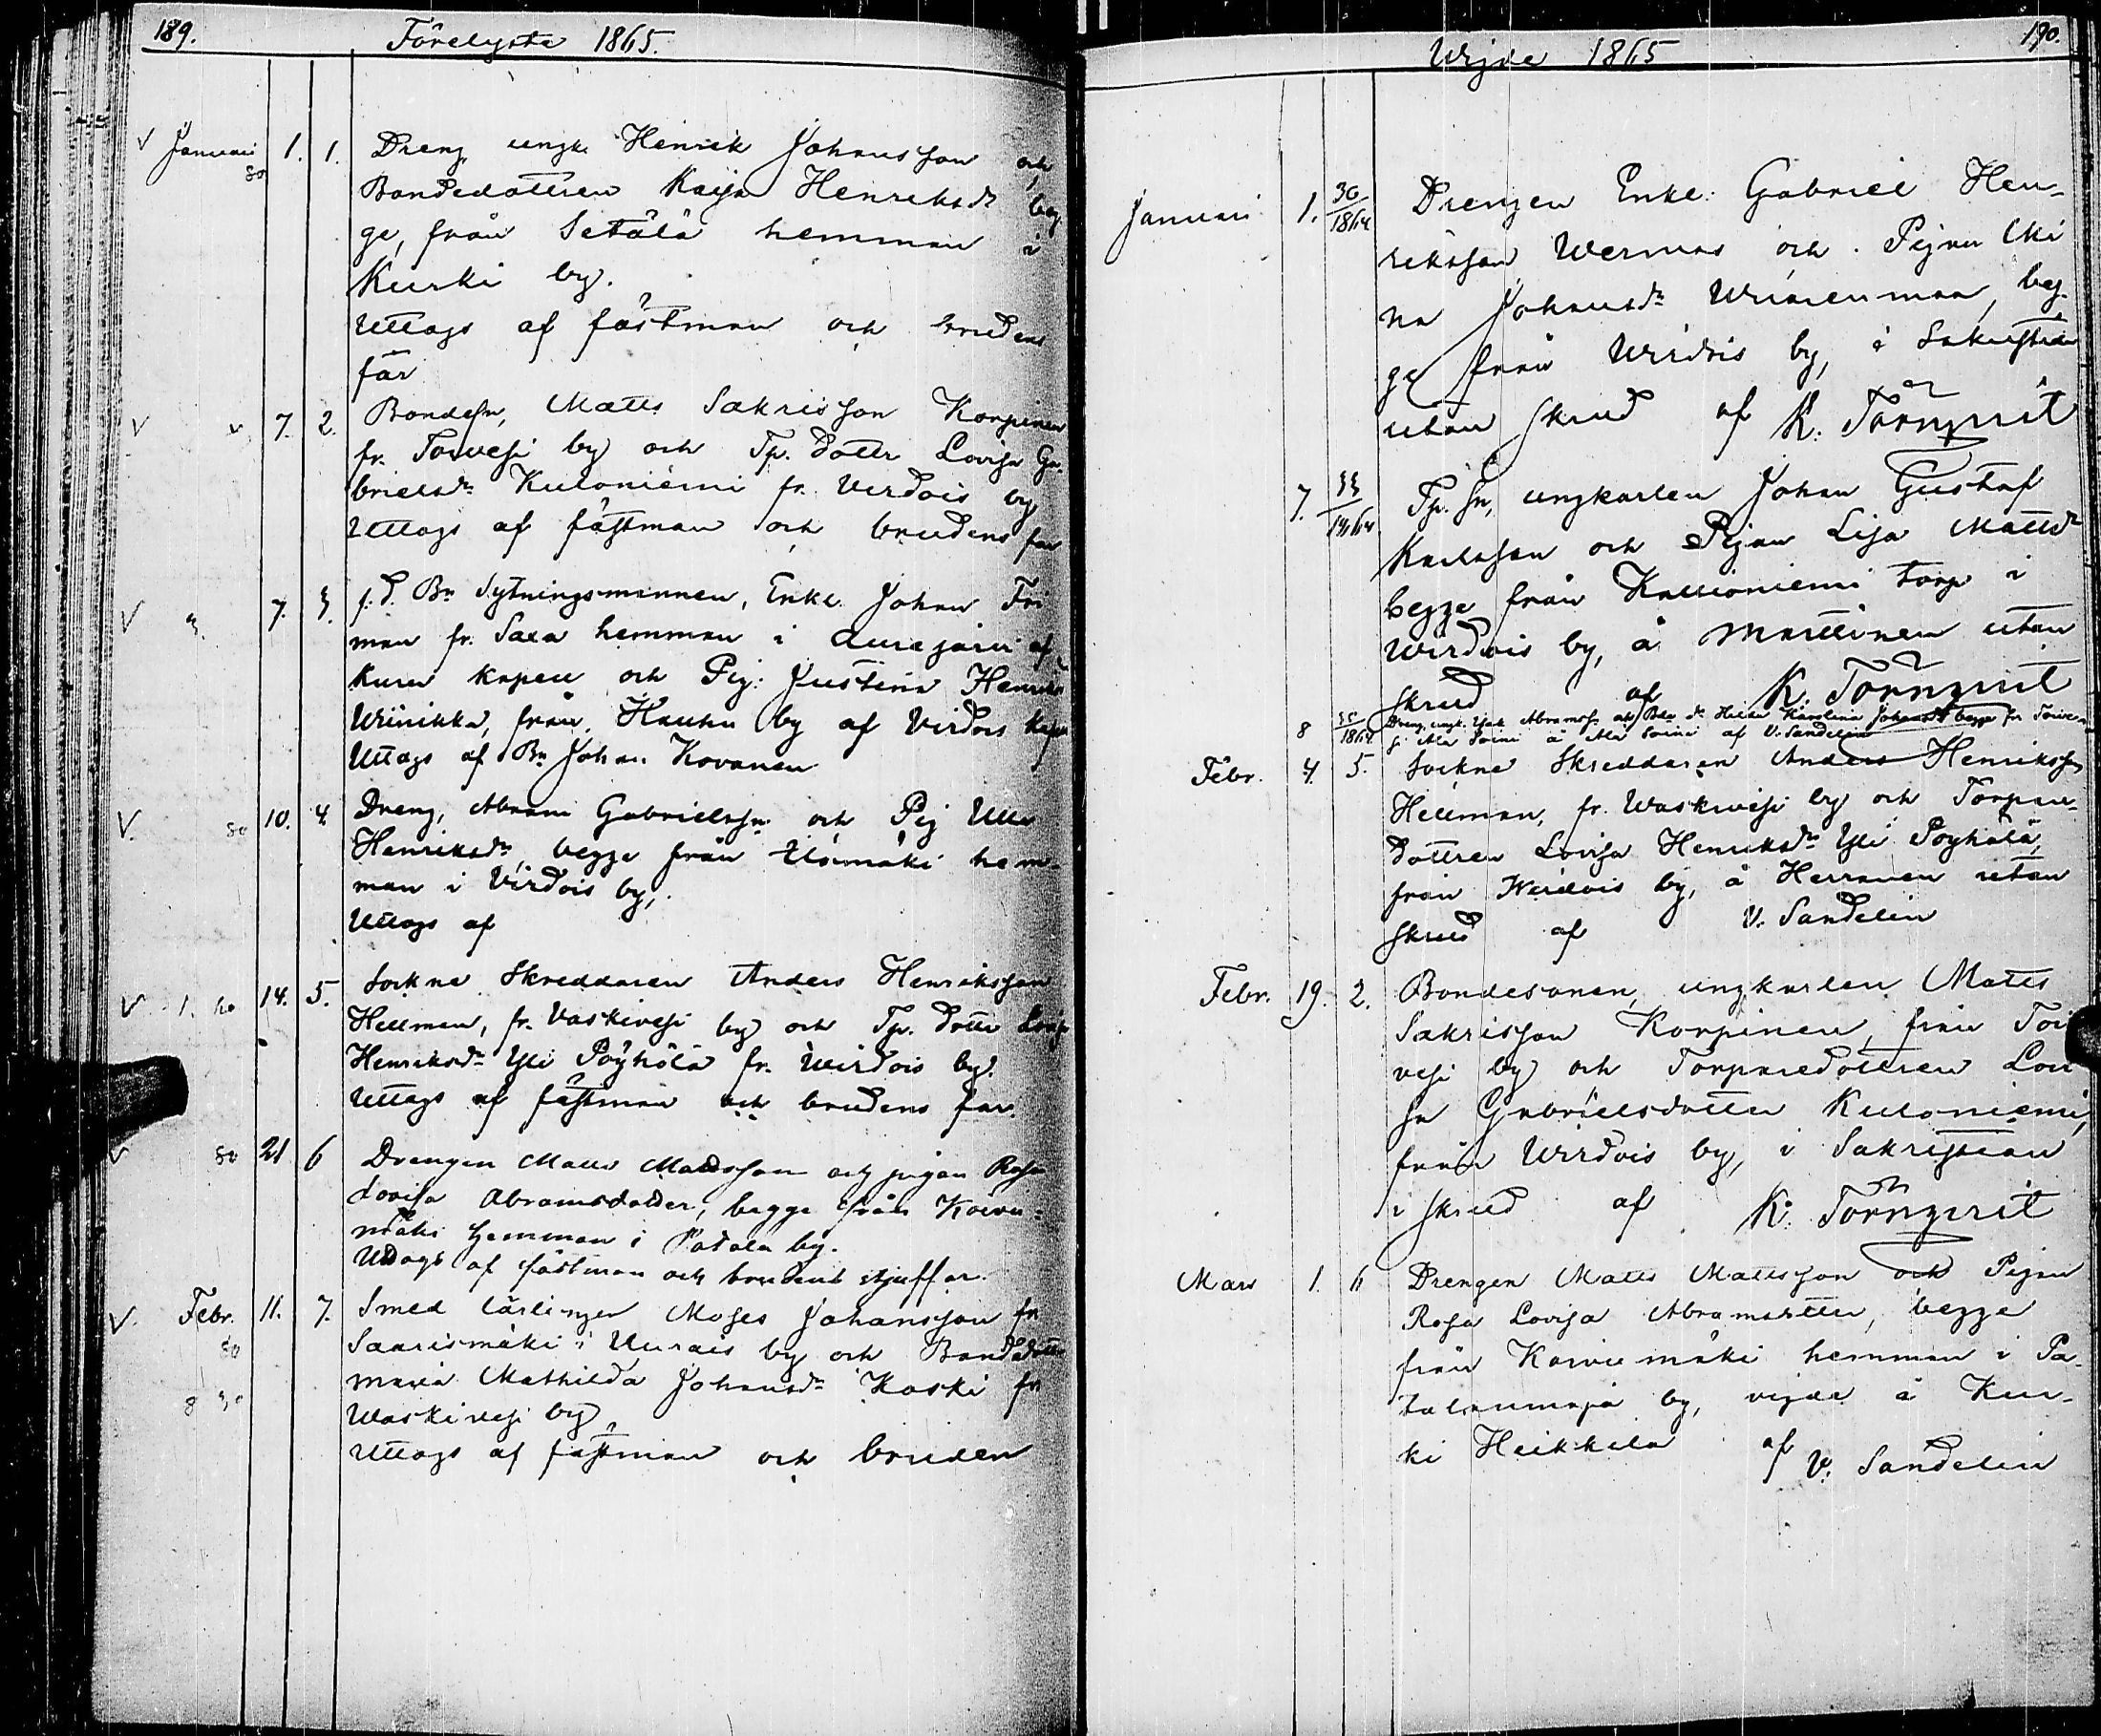 189.
Förelyste 1865.
Januari 1. 1. Dreng ungk. Henrik Johansson och
80 Bondedottren Kajsa Henriksdr beg-
ge, från Setälä hemman i
Kurki by.
Uttags af fästman och brudens
far
7. 2. Bondesn, Matts Sakrisson Korpinen
fr. Toivesi by och Tp. dottr Lovisa Ga-
brielsdr Kuloniemi fr. Virdois by
Uttags af fästman och brudens far
7. 3. f.d. Bn Sytningsmannen, Enkl. Johan Fri
man fr. Saxa hemman i Aurejärvi af
Kuru kapell och Pig: Justina Henriks
Wiinikka, från Hauhu by af Virdois kapell
Uttags af Bn Johan Kovanen
80 10. 4. Dreng, Abram Gabrielssn och Pig Ulla
Henriksdr, begge från Ulómäki hem-
man i Virdois by,
Uttags af
1. 14. 5. Sockne Skreddaren Anders Henriksson
Hellman, fr. Vaskivesi by och Tp. dottr Lovisa
Henriksdr Yli Pöyhölä fr. Wirdois by.
Uttags af fästman och brudens far
80 21 6 Drengen Matts Mattsson och pigan Rosa
Lovisa Abramsdotter, begge från Koivu-
mäki hemman i Patala by.
Uttags af fästman och brudens stjuffar.
Febr. 11. 7. Smed lärlingen Moses Johansson fr
80 Saarismäki i Kurais by och Bondedotter
Maria Mathilda Johansdr Koski fr
Waskivesi by
Uttags af fästman och bruden
190.
Wigde 1865
Januari 1. 30/1864 Drengen Enkl. Gabriel Hen-
riksson Wermas och Pigan Mi
na Johansdr Wuorenmaa, beg-
ge från Wirdois by, i Sakristian
utan skrud af K. Törnqvist
7. 33/1864 Tp. sn, ungkarlen Johan Gustaf
Karlsson och Pigan Lisa Mattsdr
begge från Kallioniemi torp i
Wirdois by, å Marttinen utan
skrud af K. Törnqvist
8 35/1864 Dreng ungk. Isak Abramssn och Bdr dr Hedda Karolina Johansdr begge fr Toive-
si Ala Soini å Ala Soini af V. Sandelin
Febr. 4. 5. Sockne Skreddaren Anders Henrikssn
Hellman, fr. Waskivesi by och Torpare-
dottren Lovisa Henriksdr Yli Pöyhölä,
från Wirdois by, å Herranen utan
skrud af V. Sandelin
Febr. 19. 2. Bondesonen, ungkarlen Matts
Sakrisson Korpinen, från Toi
vesi by och Torparedottren Lovi
sa Gabrielsdotter Kuloniemi,
från Wirdois by, i Sakristian
i skrud af K. Törnqvist
Mars 1. 6 Drengen Matts Mattsson och Pigan
Rosa Lovisa Abramsdotter, begge
från Koivumäki hemman i Pa-
talanmaja by, vigde å Kur-
ki Heikkilä af V. Sandelin